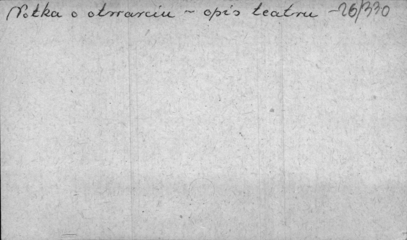 Notka o otwarciu - opis teatru - 26/330